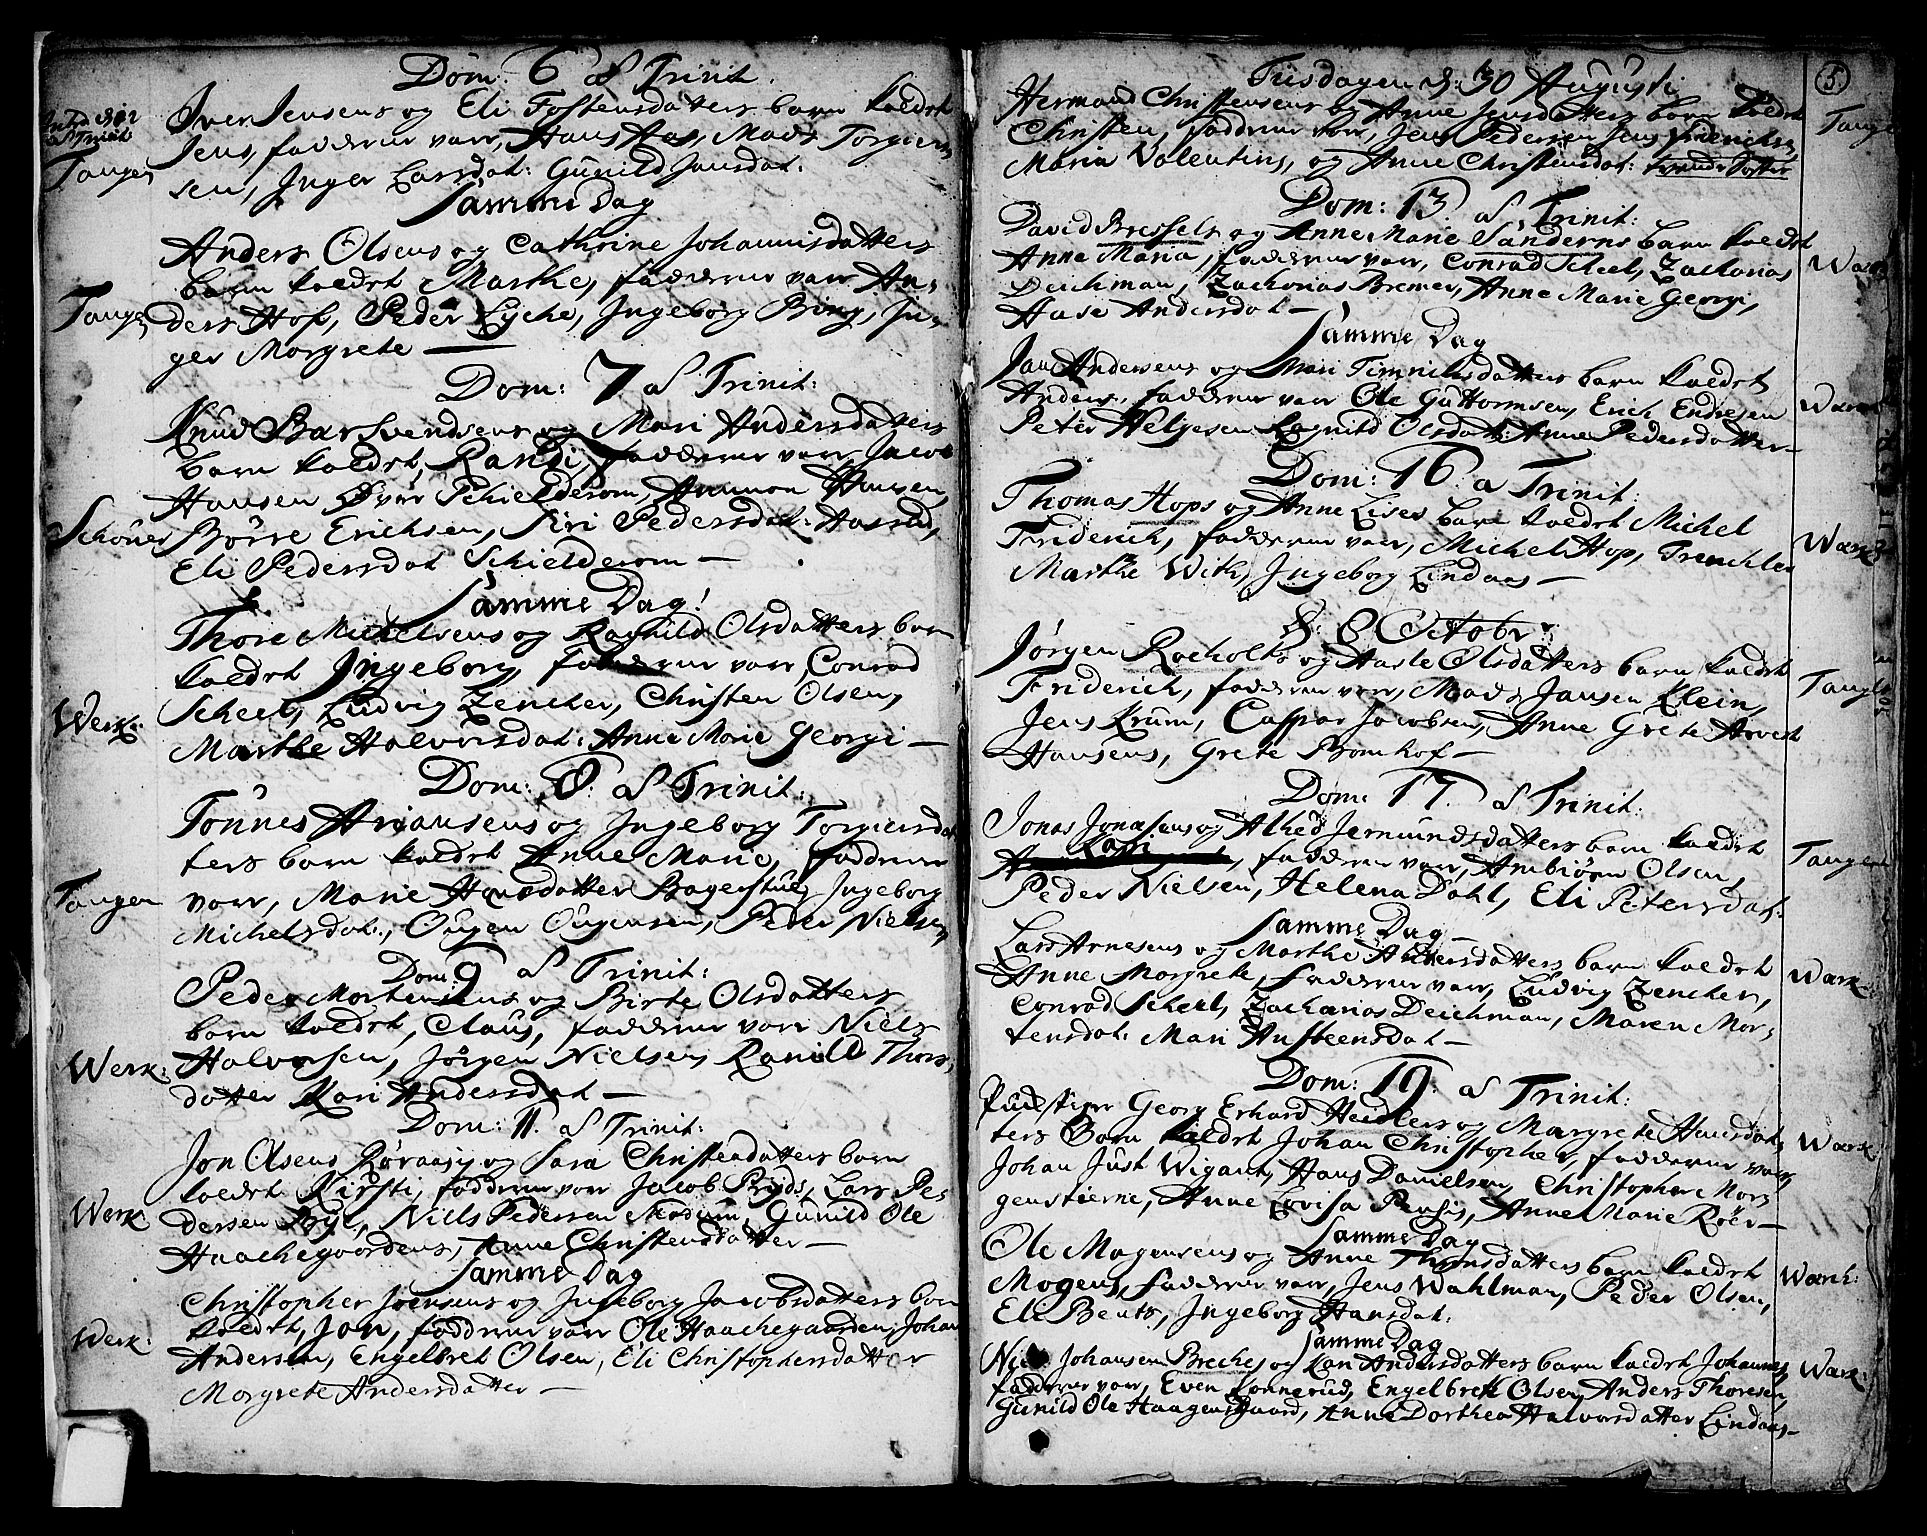 Dom: 6 af Trinit.
Iver Jensens og Eli Tostensdatters barn kaldet
Jens, fadderne vare, Hans Hof, Mads Torgier-
sen, Inger Larsdat: Gunild Jansdat:
Tangen
Samme Dag
Anders Olsens og Cathrine Johannisdatters
barn kaldet Marthe, fadderne vare An-
ders Hof, Peder Lyche, Ingeborg Bing, In-
ger Margrete —
Tangen
Dom: 7 af Trinit:
Knud Barsvendsens og Mari Andersdatters
barn kaldet Randi, fadderne vare Jacob
Hansen Øvre Schielderom, Ammon Hansen,
Børre Erichsen, Siri Pedersdat:
Eli Pedersdat Schielderom —
Samme Dag!
Thore Michelsens og Ragnild Olsdatters barn
kaldet Ingeborg, fadderne vare, Conrad
Scheel, Ludvig Zencker, Christen Olsen,
Marthe Halvorsdat: Anne Marie Georgi —
Werk:
Dom: 8. af Trinit:
Tönnes Ariansens og Ingeborg Torgiersdat
ters barn kaldet Anne Marie, fadderne
vare, Marie Hansdatter Bagerstue, Ingeborg
Michelsdat:, Ougen Ougensen, Peder Nielsen
Tangen
Dom: 9 af Trinit:
Peder Mortensens og Birte Olsdatters
barn kaldet, Claus, fadderne vare Niels
Halvorsen, Jörgen Nielsen, Ranild Thors-
datter Kari Andersdat —
Werk:
Dom: 11. af Trinit:
Jon Olsens Röraasj og Sara Christensdatters barn
kaldet Kirsti, fadderne vare Jacob Pryds, Lars Pe-
dersen Ryl, Niels Pedersen Modum, Gunild Ole
Haachegaardens, Anne Christensdatter —
Werk
Samme Dag
Christopher Joensens og Ingeborg Jacobsdatters barn
kaldet, Jon, fadderne vare Ole Haachegaarden, Johan
Andersen, Engelbret Olsen, Eli Christophersdatter
Margrete Andersdatter —
Werk:
5.
Tiisdagen d: 30 Augusti
Hermand Christensens og Anne Jensdatters barn kaldet
Christen, fadderne vare, Jens Pedersen Jens Friderichsen
Maria Valentins, og Anne Christensdat:
Tangen
Dom: 13. af Trinit:
David Bressels og Anne Marie Sanderns barn kaldet
Anna Maria, fadderne vare, Conrad Scheel, Zacharias
Deichman, Zacharias Bremer, Anne Marie Georgi,
Aase Andersdat —
Samme Dag
Jan Andersens og Mari Timnilsdatters barn kaldet
Anders, fadderne vare Ole Guttormsen, Erich Endresen
Peter Helgesen Ragnild Olsdat: Anne Pedersdatter —
Dom: 16. a Trinit:
Thomas Hops og Anne Lises barn kaldet Michel
Friderich, fadderne vare, Michel Hop,
Marthe With, Ingeborg Lindaas —
Wærk
d: 8 Octobr:
Jörgen Rocholts og Aasle Olsdatters barn kaldet
Friderich, fadderne vare, Mads Jansen Klein,
Jens Krum, Caspar Jacobsen, Anne Grete Arvedt
Hansens, Grete Bomhof —
Dom: 17. af Trinit:
Jonas Jonasens og Alhed Jermundsdatters barn kaldet
Kari, fadderne vare, Ambiörn Olsen,
Peder Nielsen, Helena Dahl, Eli Petersdat:
Tangen
Samme Dag —
Lars Arnesens og Marthe Andersdatters barn kaldet
Anne Margrete, fadderne vare, Ludvig Zencker,
Conrad Scheel, Zacharias Deichman, Maren Mor-
tensdat: Mari Austeensdat —
Wærk:
Dom: 19. af Trinit:
Puckstiger Georg Erhard Heidlers og Margrete Hansdat
ters Barn kaldet Johan Christopher, fadderne vare
Johan Just Wigant, Hans Danielsen, Christopher Mor-
genstierne, Anne Lovisa Pensis, Anne Marie Röer —
Wærk:
Samme Dag
Ole Mogensens og Anne Thorsdatters barn kaldet
Mogens, fadderne vare, Jens Wahlman, Peder Olsen,
Eli Bents, Ingeborg Hansdat:
Wærk:
Samme Dag
Niels Johansen Breches og Kari Andersdatters barn kaldet Johannes
fadderne vare, Even Konnerud, Engelbret Olsen, Anders Thoresen,
Gunild Ole Haagensgaard, Anne Dorthea Halvorsdatter Lindaas —
Wærk: